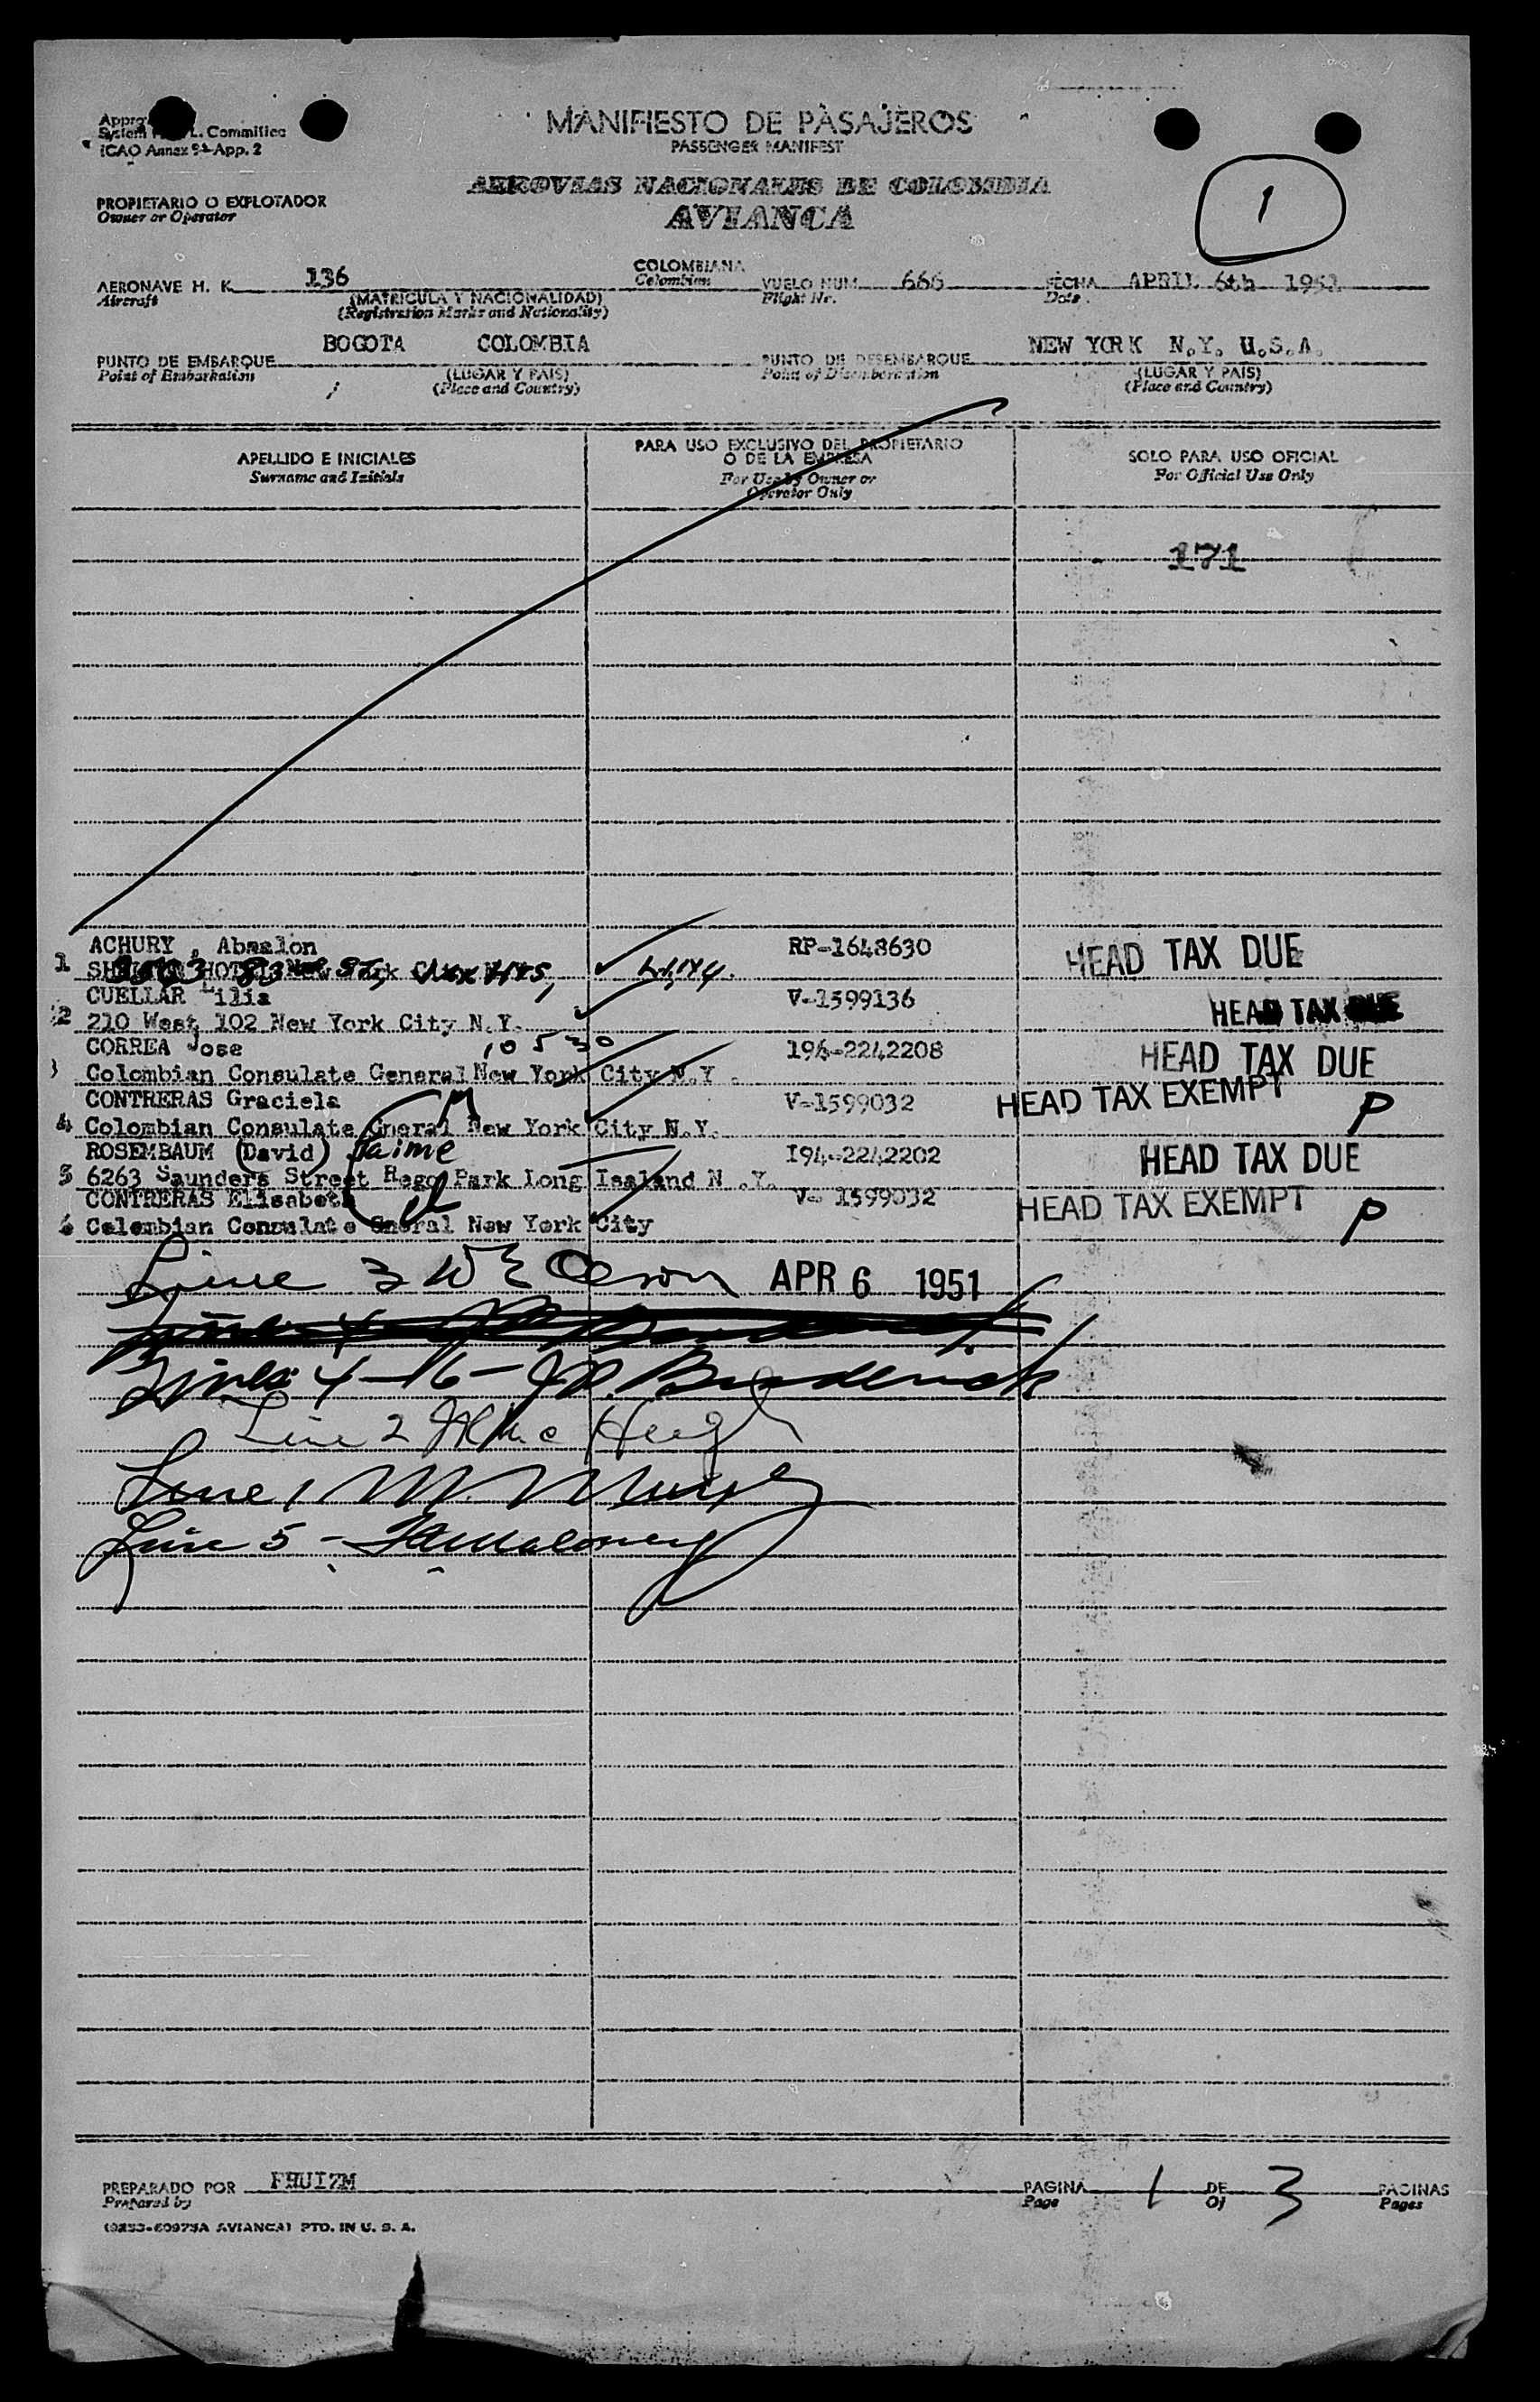 MANIFIESTO DE PASAJEROS
PASSENGER MANIFEST
System L. Committee
ICAO Annex 9-App. 2
AEROVIAS NACIONALES DE COLOMBIA
AVIANCA
1
PROPIETARIO O EXPLOTADOR
Owner or Operator
AERONAVE H. K. 136 COLOMBIANA VUELO NUM. 666 FECHA APRIL 6th 1951
Aircraft (MATRICULA Y NACIONALIDAD) Colombian Flight Nr. Date
(Registration Marks and Nationality)
PUNTO DE EMBARQUE BOGOTA COLOMBIA PUNTO DE DESEMBARQUE NEW YORK N.Y. U.S.A.
Point of Embarkation (LUGAR Y PAIS) Point of Disembarkation (LUGAR Y PAIS)
(Place and Country) (Place and Country)
APELLIDO E INICIALES PARA USO EXCLUSIVO DEL PROPIETARIO SOLO PARA USO OFICIAL
Surname and Initials O DE LA EMPRESA For Official Use Only
For Use by Owner or
Operator Only
171
ACHURY , Absalon RP-1648630 HEAD TAX DUE
1 HOTEL New York
CUELLAR Lilia V-1599136 HEAD TAX DUE
2 210 West 102 New York City N.Y.
CORREA Jose 10530 194-2242208 HEAD TAX DUE
3 Colombian Consulate General New York City N.Y.
CONTRERAS Graciela V-1599032 HEAD TAX EXEMPT P
4 Colombian Consulate Gneral New York City N.Y.
ROSEMBAUM (David) Jaime I94-2242202 HEAD TAX DUE
5 6263 Saunders Street Rego Park Long Issland N.Y.
CONTRERAS Elisabet V- 1599032 HEAD TAX EXEMPT P
6 Colombian Consulate Gneral New York City
Line 3 W E Olson APR 6 1951
Lines 4-6- J.P. Broderick
Line 2 Mc Hugh
Line 1 M. Murphy
Line 5 - Maloney
PREPARADO POR FHUIZM PAGINA 1 DE 3 PAGINAS
Prepared by Page Of Pages
AVIANCA) PTD. IN U. S. A.